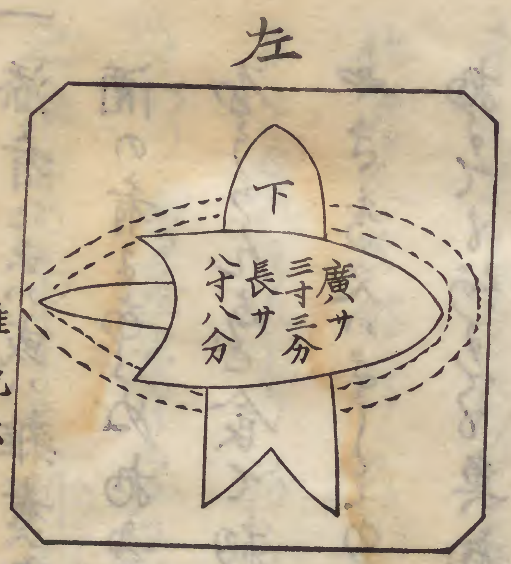 左
下
廣ハサ
三寸三分
長サ
八寸八分